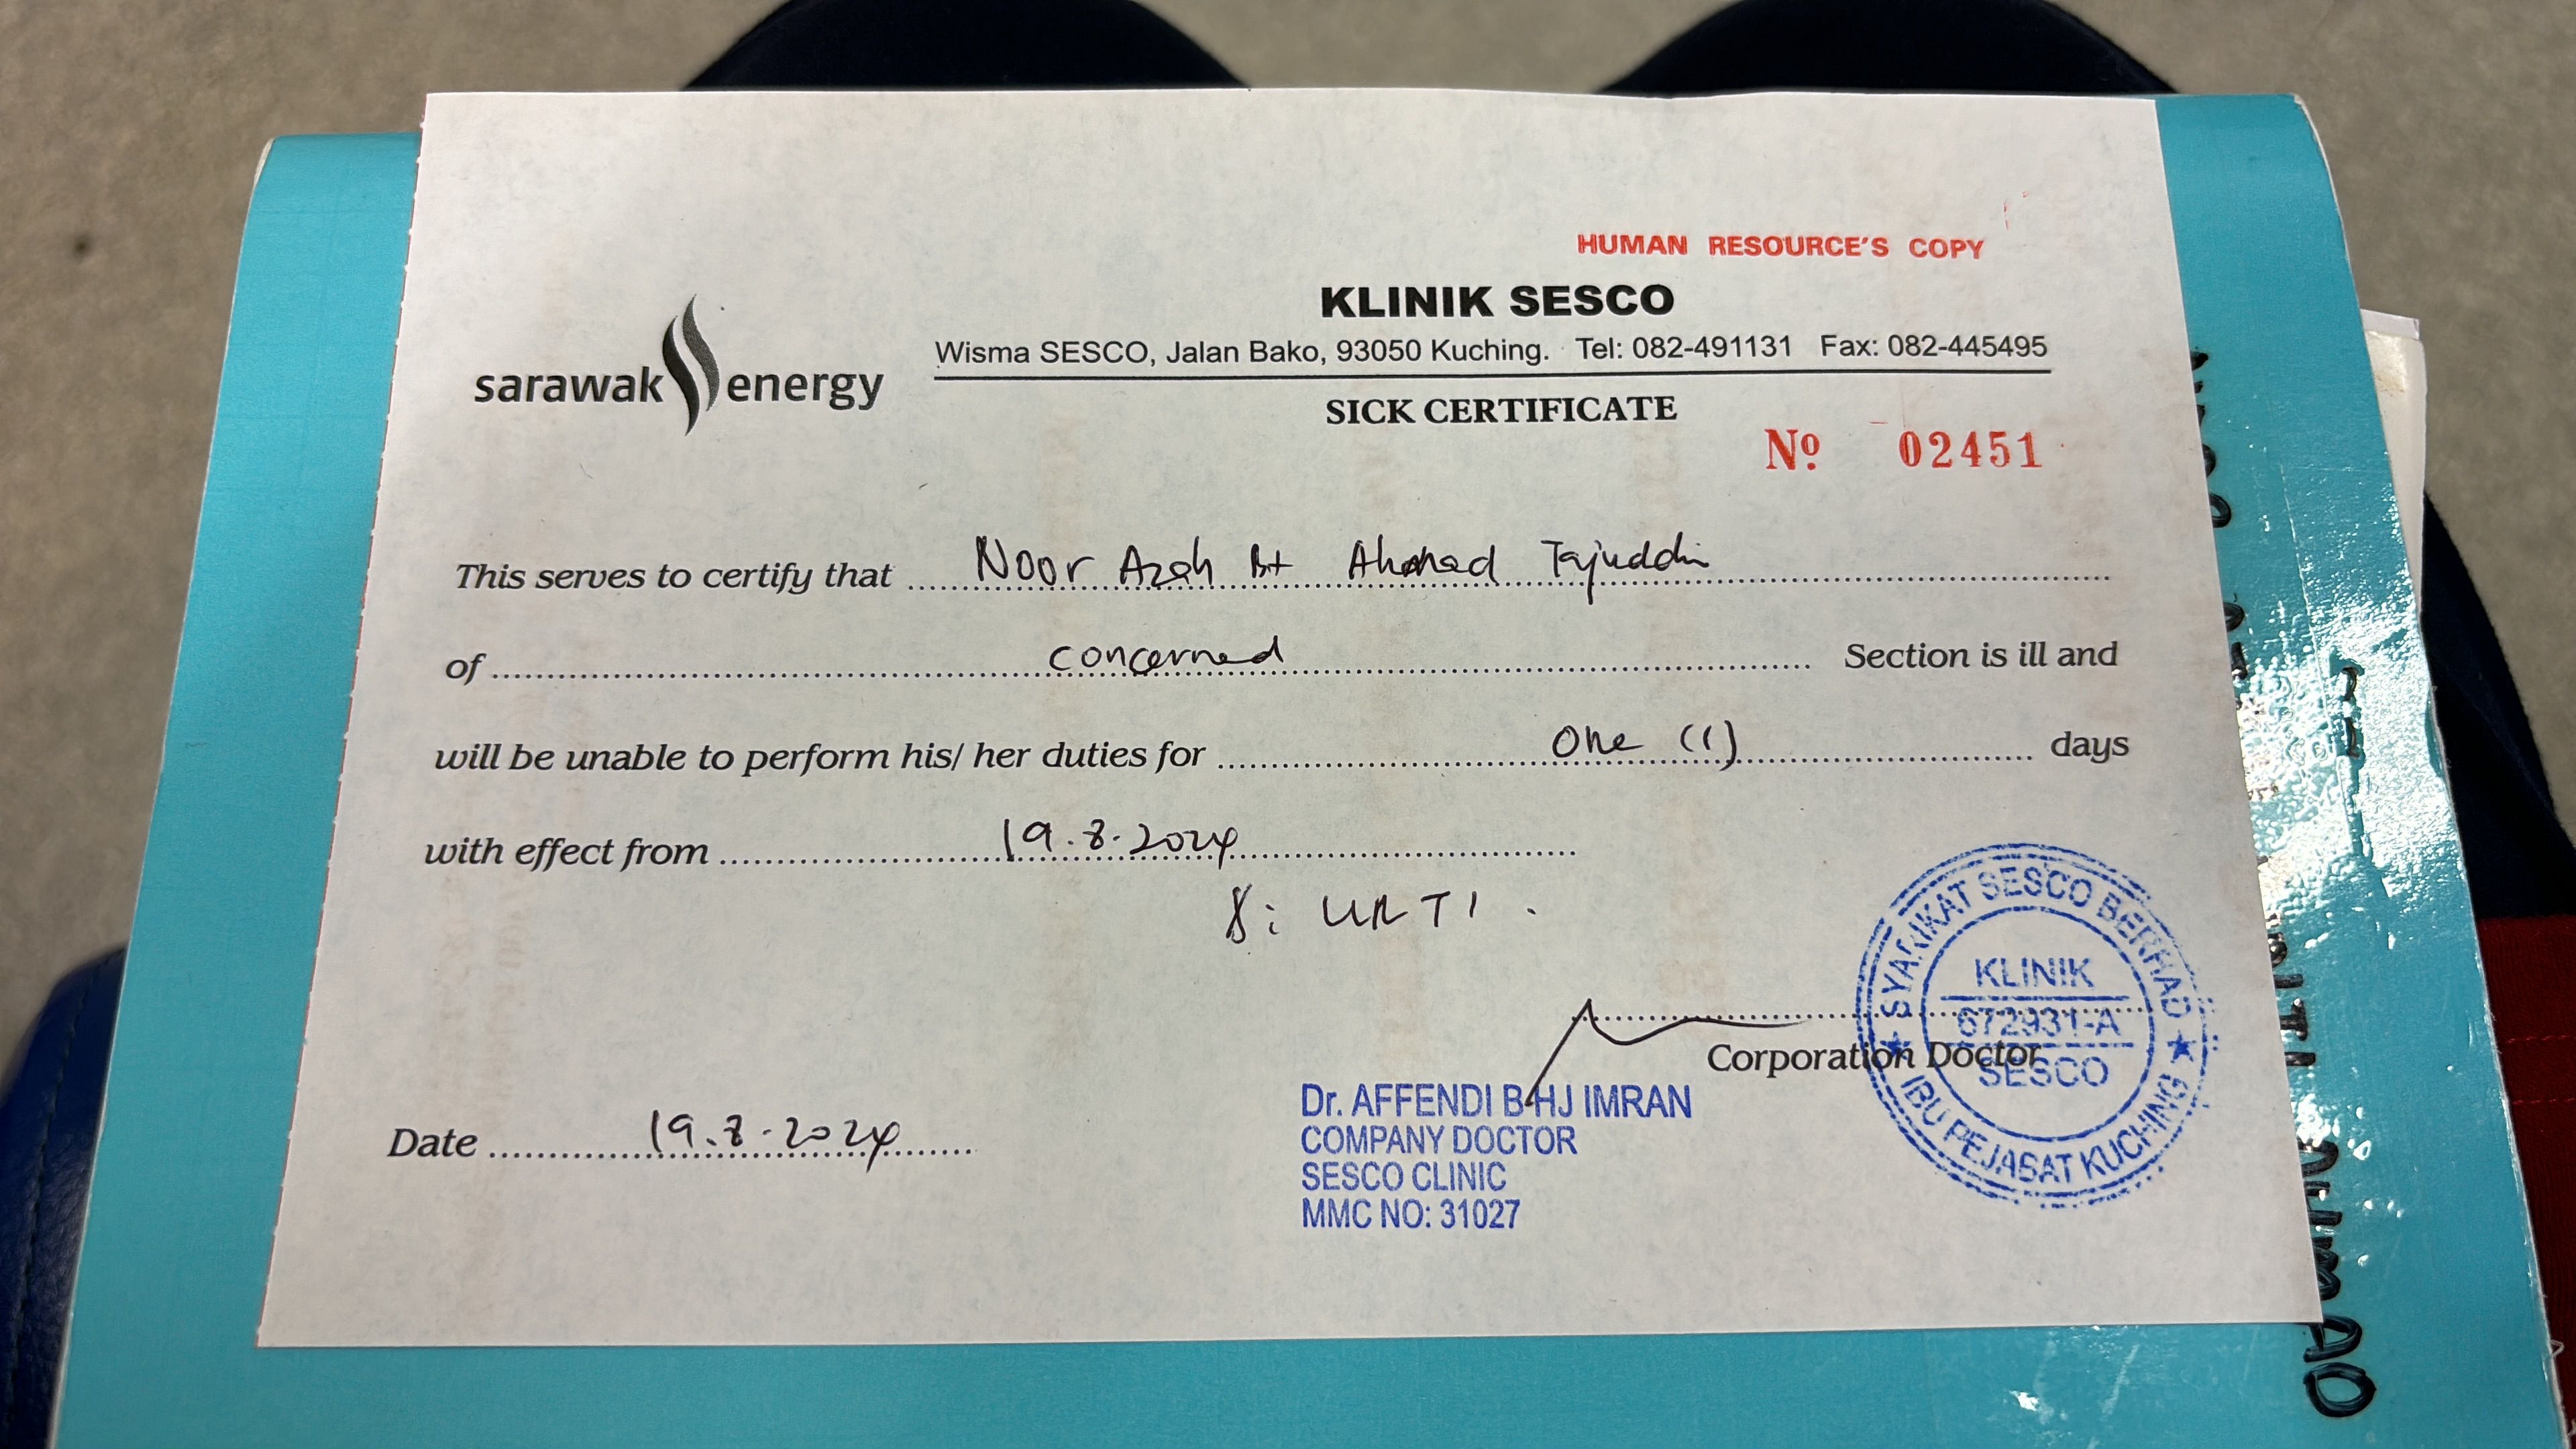 HUMAN RESOURCE'S COPY
KLINIK SESCO
sarawak energy
Wisma SESCO, Jalan Bako, 93050 Kuching. Tel: 082-491131 Fax: 082-445495
SICK CERTIFICATE
Nº 02451
This serves to certify that Noor Azah bt Ahmad Tajuddin
of concerned Section is ill and
will be unable to perform his/ her duties for One (1) days
with effect from 19.8.2024
: URTI.
Corporation Doctor
Date 19.8.2024
Dr. AFFENDI B HJ IMRAN
COMPANY DOCTOR
SESCO CLINIC
MMC NO: 31027
SYARIKAT SESCO BERHAD
KLINIK
672931-A
SESCO
IBU PEJABAT KUCHING